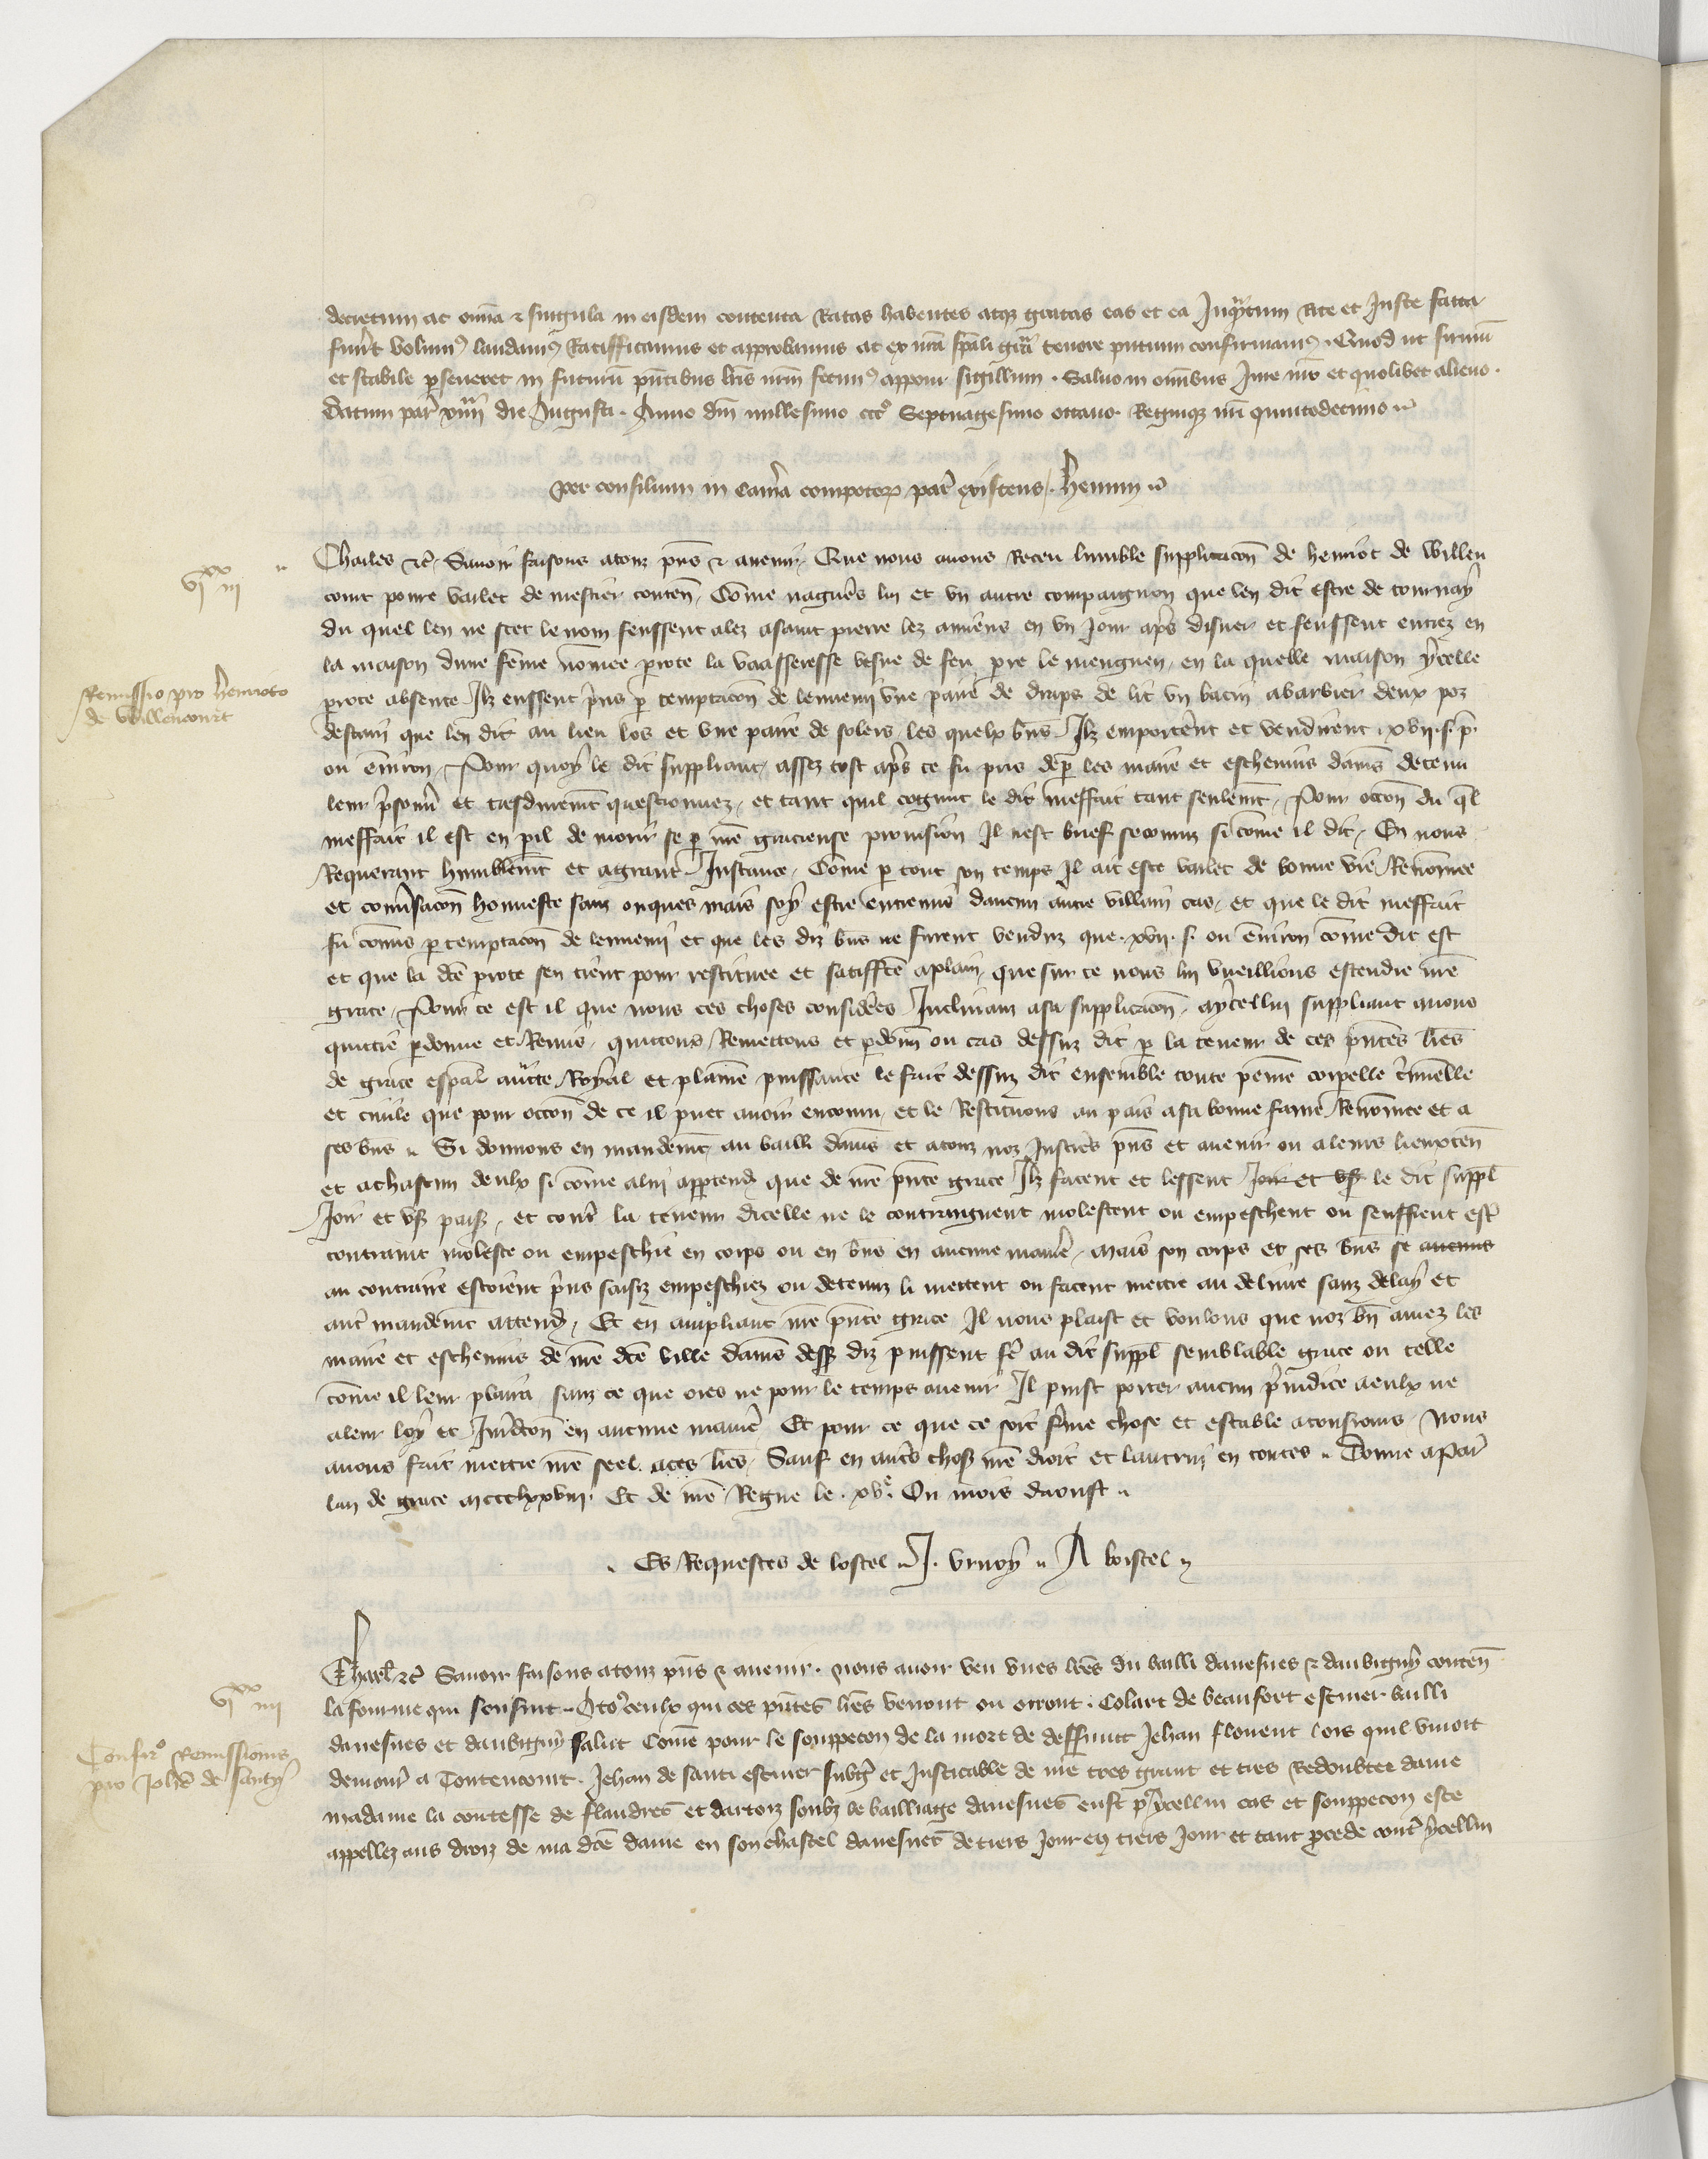 decretum ac omīa & singula in eisdem contenta Ratas habentes atqz gratas eas et ea Inqͣntum Rite et Juste facta
fueṝt volumꝰ laudamꝰ Ratifficamus et approbamus ac ex nr̄a sp̄ali gr̄a tenore pn̄tium confirmamꝰ . Quod ut firmū
et stabile perseueret in futurū pn̄tibus lr̄is nr̄m fecimꝰ apponi sigillum . Saluo in om̄ibus Jure nr̄o et quolibet alieno .
Datum par̄ xiiii die Augusti . Anno dn̄i millesimo ccc° Septuagesimo octauo . Regniqz nr̄i quintodecimo
per consilium in cam̄a compotoꝝ par̄ existens . henniny
vi xx iii
Remissio pro henrioto
de Willencourt
Charles &c̄ . Sauoir faisons a touz pn̄s & auenir . Que nous auons Receu lumble supplicacōn de henriot de Willen
court poure varlet de mestier conten̄ . Cōme nagueres lui et vn autre compaignon que len dit estre de tournay
du quel len ne scet le nom feussent alez a saint pierre lez amiens en vn Jour apr̄s disner et feussent entrez en
la maison dune fēme nōmee perote la vaasseresse vefue de feu pierre le mengnen , en la quelle maison ycelle
perote absente Ilz eussent prins par temptacōn de lennemi vne paire de draps de lit vn bacin a barbier deux poz
destain que len dit au lieu los et vne paire de solers , les quelx bn̄s Ilz emporterent et vendirent . xvii . s . p̄ .
ou enuiron . Pour quoy le dit suppliant assez tost apr̄s ce fu pris de par les maire et escheuins damiēs detenu
leur prisonn̄ et tresdurement questionnez , et tant quil cogut le dit meffait tant seulement , Pour occōn du q̄l
meffait il est en peril de morir se par nr̄e gracieuse prouision Il nest brief secouruz si cōme il dit , En nous
Requerant humblement et a grant Instance , Cōme par tout son temps Il ait este varlet de bonne vie Renōmee
et conuersacōn honneste sanz onques mais soy estre entremis daucun autre villain cas , et que le dit meffait
fu cōmis par temptacōn de lennemi et que les diz bn̄s ne furent venduz que . xvii . s . ou enuiron cōme dit est
et que la dc̄e perote sen tient pour restituee et satiffc̄e a plain , que sur ce nous lui vueillions estendre nr̄e
grace , Pour ce est il que nous ces choses considerees Inclinans a sa supplicacōn , a ycellui suppliant auons
quittie pardonne et Remis , quittons Remettons et pardonn̄ ou cas dessuz dit par la teneur de ces pn̄tes lr̄es
de grace esp̄al auctorite Royal et plaine puissance le fait dessuz dit ensemble toute peine corporelle criminelle
et ciuile que pour occōn de ce il puet auoir encouru , et le Restituons au pais a sa bonne fame Renōmee et a
ses bn̄s . Si donnons en mandement au bailli damiēs et a touz noz Justiciers pn̄s et auenir ou a leurs lieuxten̄
et a chascun deulx si cōme a lui appartendra que de nr̄e pn̄te grace Ilz facent et lessent Joir et vser le dit suppl̄
Joir et vser paisiblement , et contre la teneur dicelle ne le contraignent molestent ou empeschent ou seuffrent estre
contraint moleste ou empeschie en corps ou en bn̄s en aucune maniere , mais son corps et ses bn̄s se aucuns
au contraire estoient prins saisiz empeschiez ou detenuz li mettent ou facent mettre au deliure sanz delay et
autre mandement attendre , Et en ampliant nr̄e pn̄te grace Il nous plaist et voulons que noz bn̄ amez les
maire et escheuins de nr̄e dc̄e ville damiēs dessus diz puissent f̄e au dit suppl̄ semblable grace ou telle
cōme il leur plaira , sanz ce que ores ne pour le temps auenir Il puist porter aucun preiudice a eulx ne
a leur loy et Juridicōn en aucune maniere Et pour ce que ce soit ferme chose et estable a tousiours . Nous
auons fait mettre nr̄e seel a ces lr̄es , Sauf en autres choses nr̄e droit et lautruy en toutes . Donne a Par̄
lan de grace mccclxxviii . Et de nr̄e Regne le . xve . Ou mois daoust
Es Requestes de lostel . J . vrnoy . A boistel
vi xx iiii
Confir° Remissionis
pro Joh̄e de Santy
Charl̄ &c̄ Sauoir faisons a touz pn̄s & auenir . nous auoir veu vnes lr̄es du bailli dauesnes & daubigny conten̄
la fourme qui sensuit . A touˢ ceulx qui ces pn̄tes lr̄es verront ou orront . Colart de beaufort escuier bailli
dauesnes et daubigny salut Cōme pour le souppecon de la mort de deffunct Jehan flouent lors quil viuoit
demourant a Contencourt . Jehan de santi escuier subgiet et Justicable de me tres grant et tres Redoubtee dame
madame la contesse de flandres et dartoiz soubz le bailliage dauesnes eust pour ycellui cas et souppecon este
appellez aus droiz de ma dc̄e dame en son chastel dauesnes de tiers Jour en tiers Jour et tant procede contre ycellui